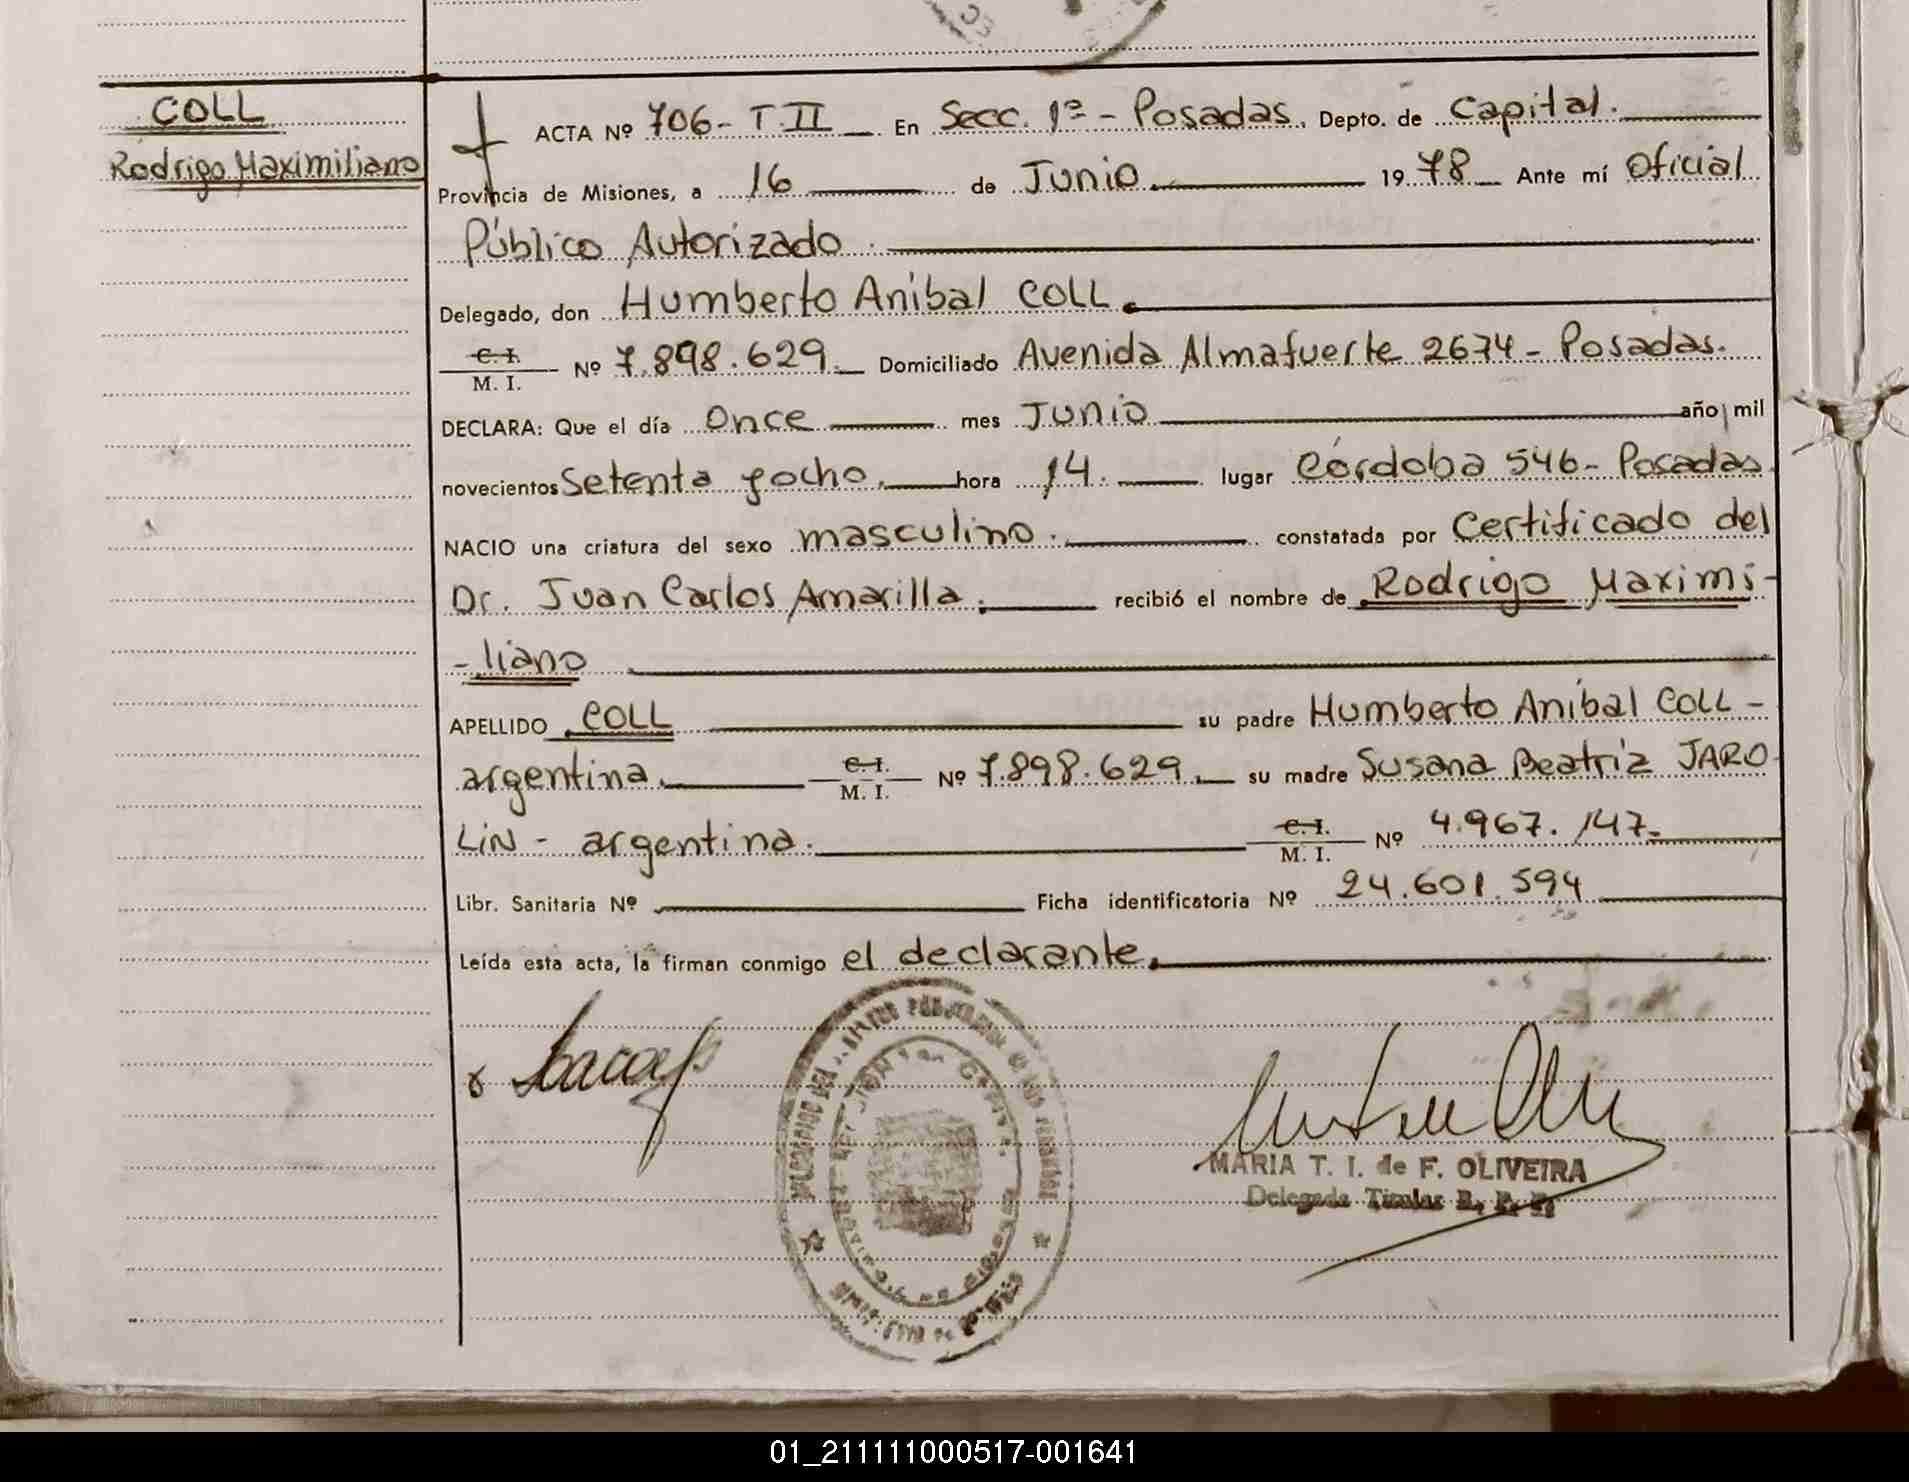 COLL
Rodrigo Maximiliano
ACTA Nº 706- T.II En Secc. 1ª - Posadas. Depto. de Capital.
Provincia de Misiones, a 16 de Junio 1978 Ante mí Oficial
Público Autorizado.
Delegado, don Humberto Anibal COLL.
C. I.
M. I. Nº 7.898.629. Domiciliado Avenida Almafuerte 2674 - Posadas.
DECLARA: Que el día Once mes Junio año mil
novecientos Setenta y ocho. hora 14. lugar Córdoba 546- Posadas.
NACIO una criatura del sexo masculino. constatada por Certificado del
Dr. Juan Carlos Amarilla. recibió el nombre de Rodrigo Maximi-
-liano
APELLIDO COLL su padre Humberto Aníbal COLL -
argentina. C. I. M. I. Nº 7.898.629. su madre Susana Beatriz JARO
LIN - argentina. C. I. M. I. Nº 4.967.147.-
Libr. Sanitaria Nº Ficha identificatoria Nº 24.601.594
Leída esta acta, la firman conmigo el declarante.
MARIA T. I. de F. OLIVEIRA
Delegada Titular R. P. P.
01_211111000517-001641